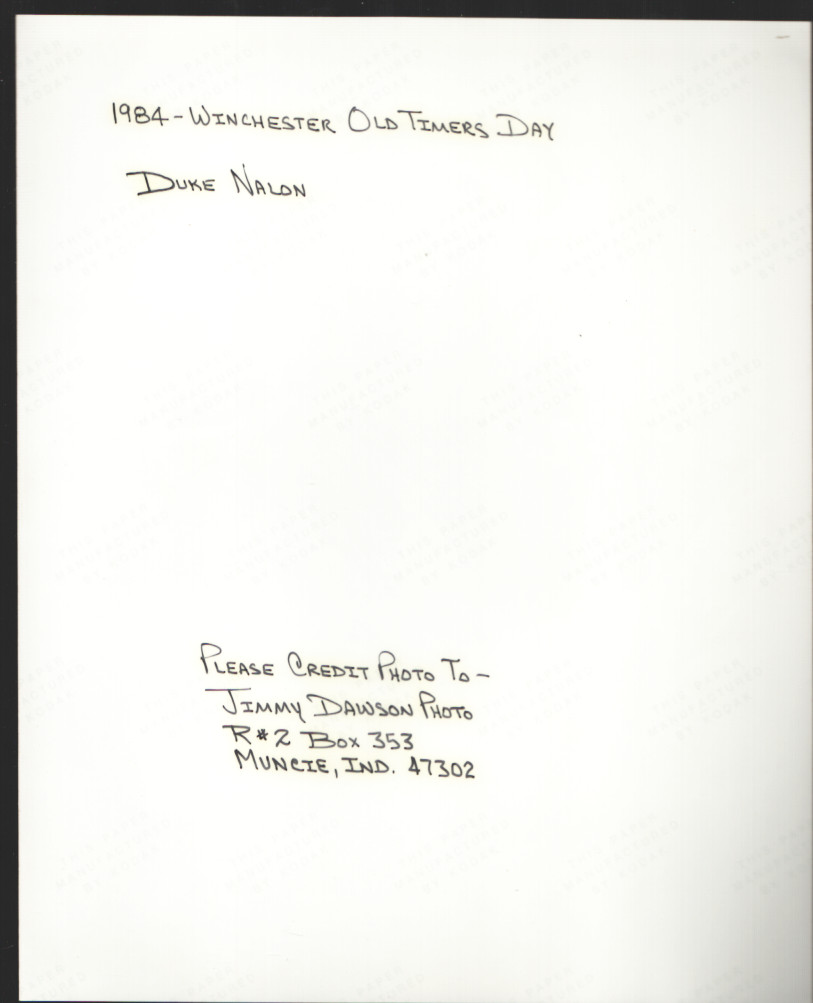 1984 - WINCHESTER OLD TIMERS DAY
DUKE NALON
PLEASE CREDIT PHOTO TO -
JIMMY DAWSON PHOTO
R#2 BOX 353
MUNCIE, IND. 47302
THIS PAPER
MANUFACTURED
BY KODAK